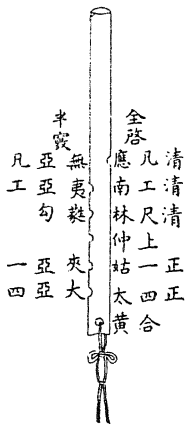 全啓
清清清正正
凡工尺上一四合
應南林仲姑太黃
半竅
無夷蕤夾大
亞亞勾亞亞
凡工一四